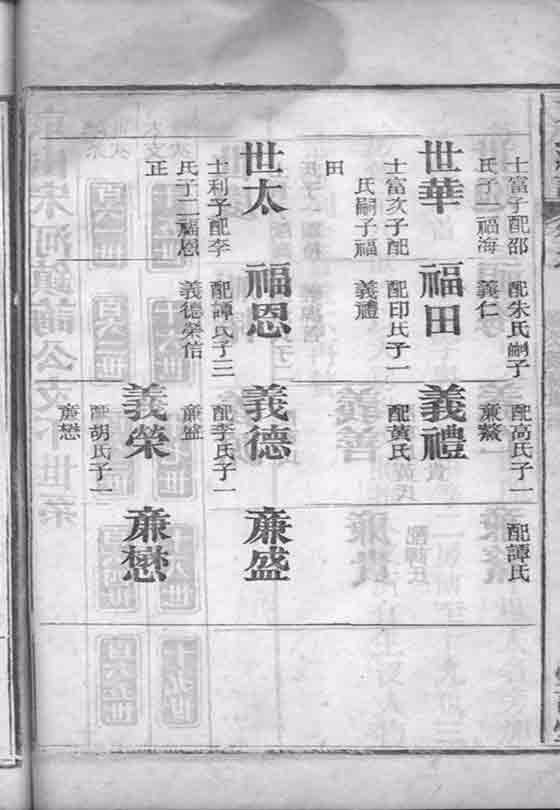 士富子配邵
氏子一福海
世華
士富次子配
氏嗣子福
田
世太
士利子配李
氏子二福恩
正
配朱氏嗣子
義仁
福田
配印氏子一
義禮
福恩
配譚氏子三
義德榮信
配高氏子一
義禮
配黃氏
義德
配李氏子一
亷盛
義榮
配胡氏子一
亷懋
配譚氏
亷盛
亷懋